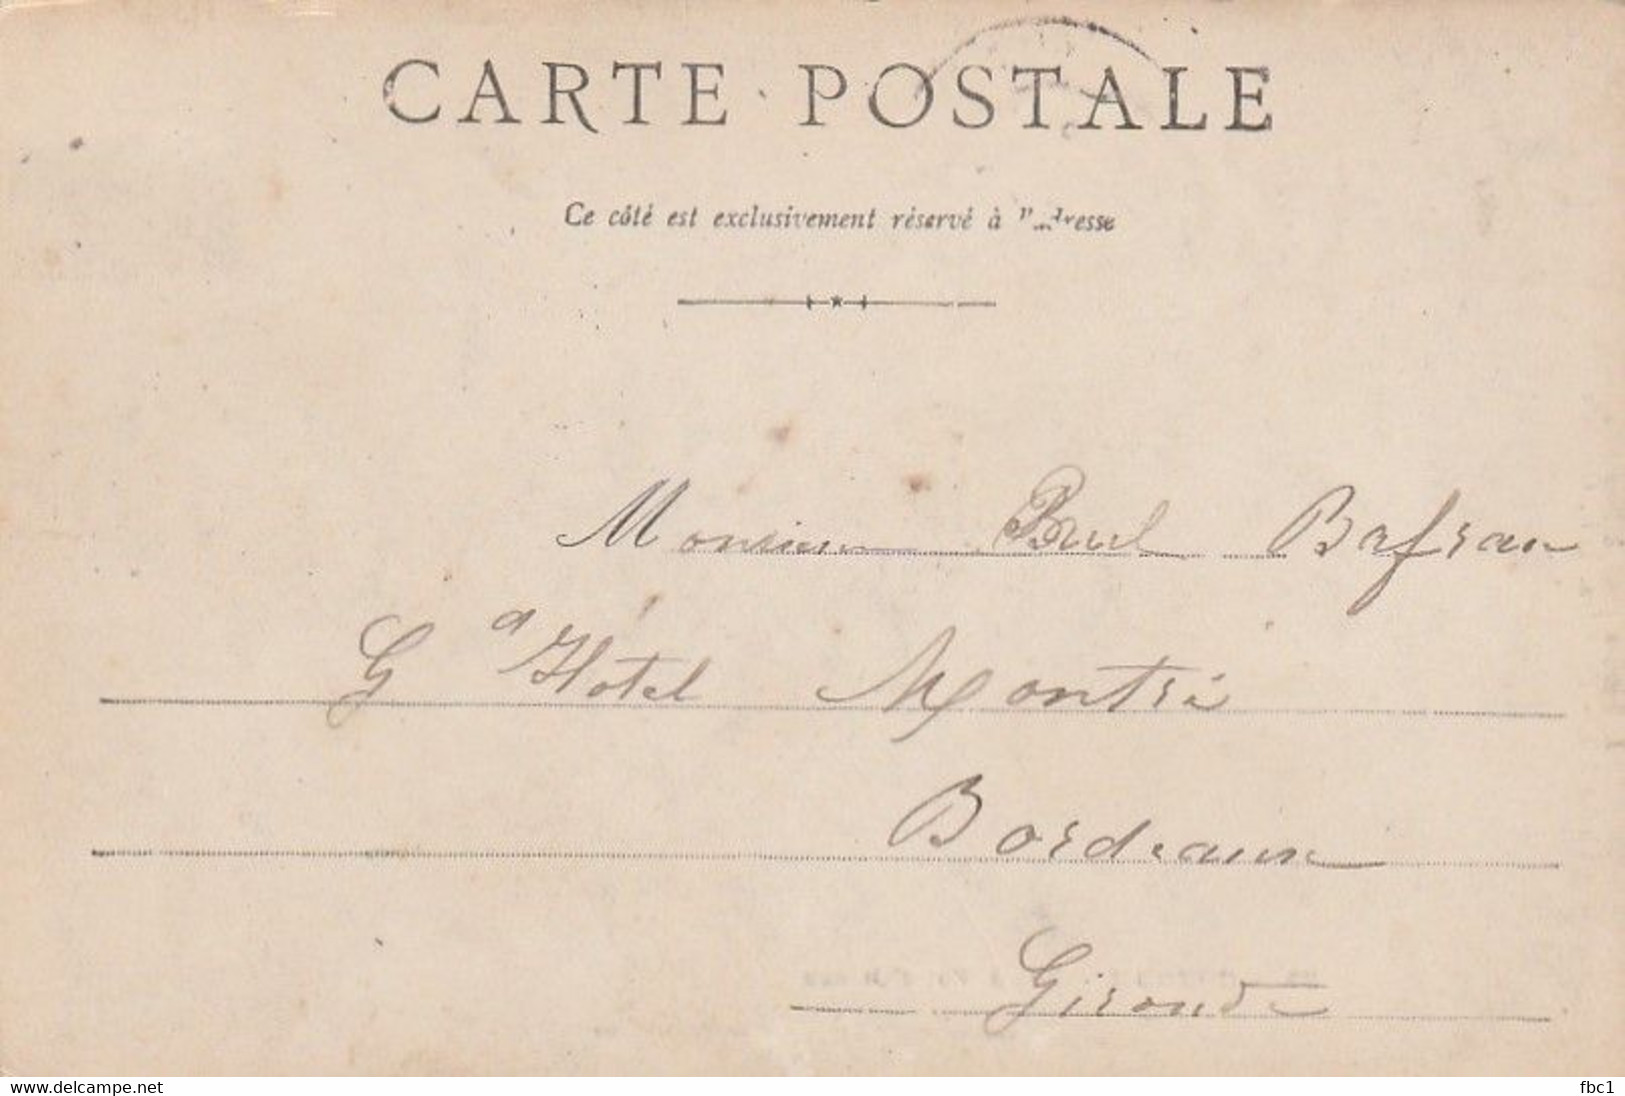 CARTE POSTALE
Ce côté est exclusivement réservé à l'adresse
Monsieur Bafran
Gd Hôtel Montré
Bordeaux
Gironde
www.delcampe.net
fbc1